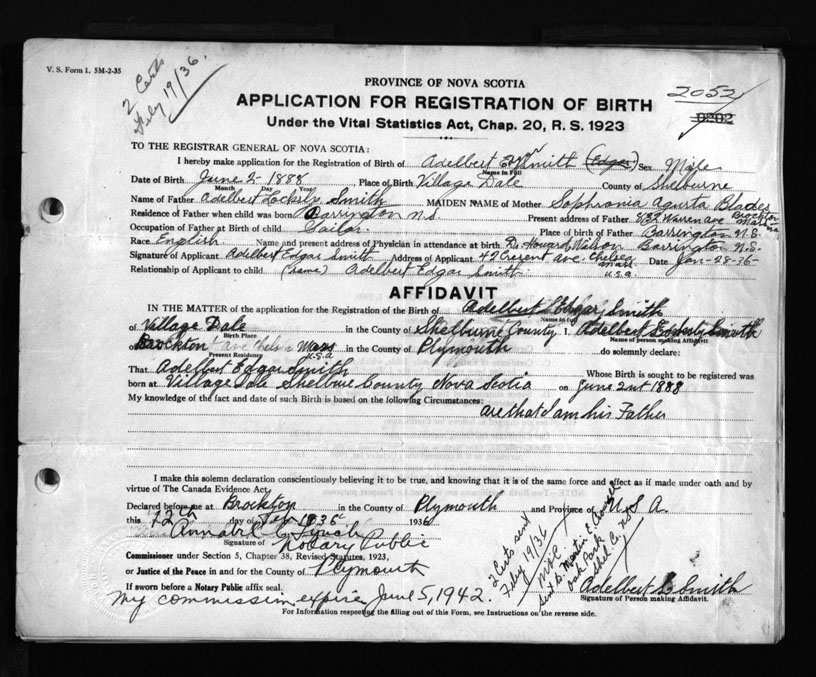 V. S. Form 1. 5M-2-35
2 Certs
Feby 19/36.
PROVINCE OF NOVA SCOTIA
2052
APPLICATION FOR REGISTRATION OF BIRTH
0202
Under the Vital Statistics Act, Chap. 20, R. S. 1923
TO THE REGISTRAR GENERAL OF NOVA SCOTIA:
I hereby make application for the Registration of Birth of Adelbert Smith (Edgar) Sex Male
Name in Full
Date of Birth June 2- 1888 Place of Birth Village Dale County of Shelburne
Month Day Year
Name of Father Adelbert Locksly Smith MAIDEN NAME of Mother Sophronia Agusta Blades
Residence of Father when child was born Barrington N.S. Present address of Father 532 Warren ave Brockton Mass
Occupation of Father at Birth of child Sailor. Place of birth of Father Barrington N.S.
Race English Name and present address of Physician in attendance at birth Dr. Howard Wilson Barrington N.S.
Signature of Applicant Adelbert Edgar Smith Address of Applicant 42 Cresent ave. Chelsea Mass U.S.A. Date Jan-28-36-
Relationship of Applicant to child (same) Adelbert Edgar Smith.
AFFIDAVIT
IN THE MATTER of the application for the Registration of the Birth of Adelbert Edgar Smith
Name in full
of Village Dale in the County of Shelburne County I, Adelbert Smith
Birth Place Name of person making Affidavit
of Brockton Mass U.S.A in the County of Plymouth do solemnly declare:
Present Residence
That Adelbert Edgar Smith Whose Birth is sought to be registered was
born at Village Dale Shelbure County Nova Scotia on June 2nt 1888
My knowledge of the fact and date of such Birth is based on the following Circumstances:
are that I am his Father
I make this solemn declaration conscientiously believing it to be true, and knowing that it is of the same force and effect as if made under oath and by
virtue of The Canada Evidence Act.
Declared before me at Brockton in the County of Plymouth and Province of U.S.A.
this 12th day of Feb 1936 1936
Signature of Notary Public
Commissioner under Section 5, Chapter 38, Revised Statutes, 1923,
or Justice of the Peace in and for the County of Plymouth
2 Certs sent
Feby 19/36
Adelbert L Smith
Signature of Person making Affidavit.
If sworn before a Notary Public affix seal.
My commission expires June 5, 1942.
For Information respecting the filling out of this Form, see Instructions on the reverse side.